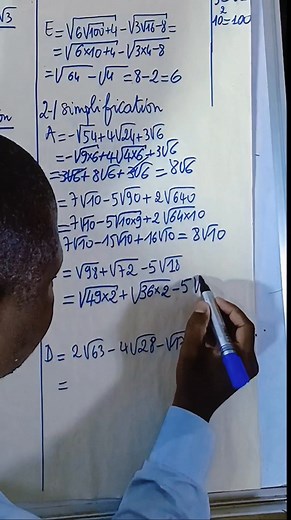 √3
2
10=100
E = √(6√100+4) - √(3√16-8) =
= √(6×10+4) - √(3×4-8)
= √64 - √4 = 8-2=6
2-/ Simplification
A = -√54+4√24+3√6
= -√9×6+4√4×6+3√6
= -3√6+8√6+3√6 = 8√6
= 7√10-5√90+2√640
= 7√10-5√10×9+2√64×10
7√10-15√10+16√10 = 8√10
= √98+√72-5√18
= √49×2+√36×2-5√
D = 2√63-4√28-√
=